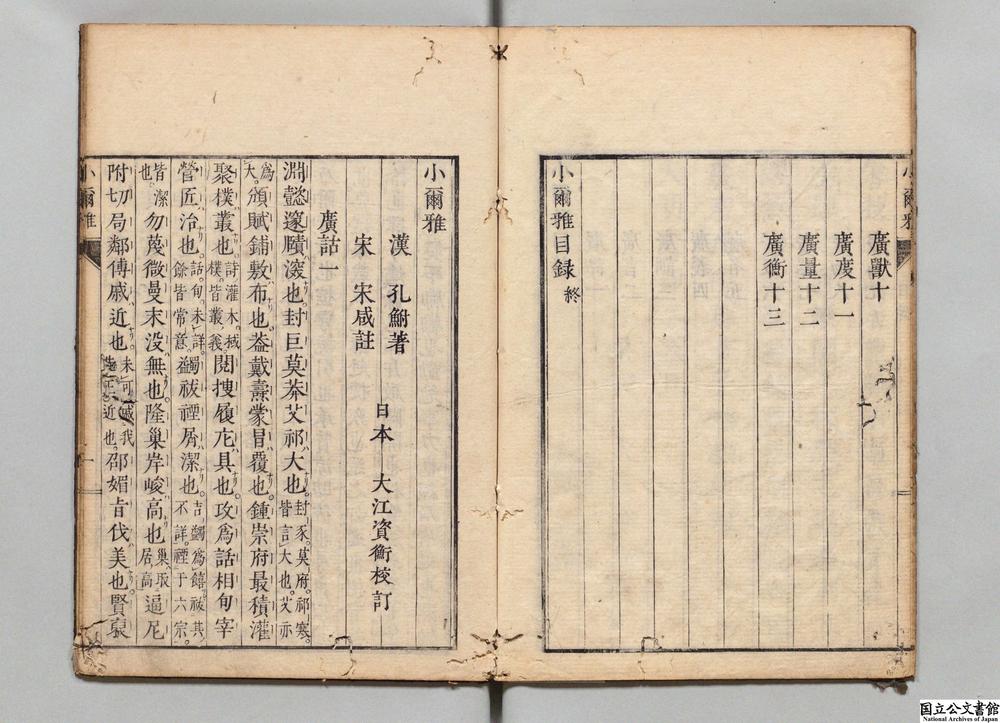 廣獸十
廣度十一
廣量十二
廣衡十三
小爾雅目録 終
小爾雅
漢 孔鮒著
宋 宋咸註
日本 大江資衡校訂
廣詁一
淵懿邃賾深也封巨莫莽艾祁大也封豕莫府祁寒皆言大也艾亦
爲大頒賦鋪敷布也蓋戴燾蒙冒覆也鍾崇府最積灌
聚樸叢也詩灌木棫樸皆叢義閱搜履庀具也攻爲話相旬宰
營匠治也話旬未詳餘皆常意蠲祓禋屑潔也吉蠲爲饎祓其不詳禋于六宗
皆潔也勿蔑微曼末没無也隆巢岸峻高也巢取居高逼尼
附切局鄰傅戚近也未可戚我近也邵媚旨伐美也賢
小爾雅
一
小爾雅
国立公文書館
National Archives of Japan